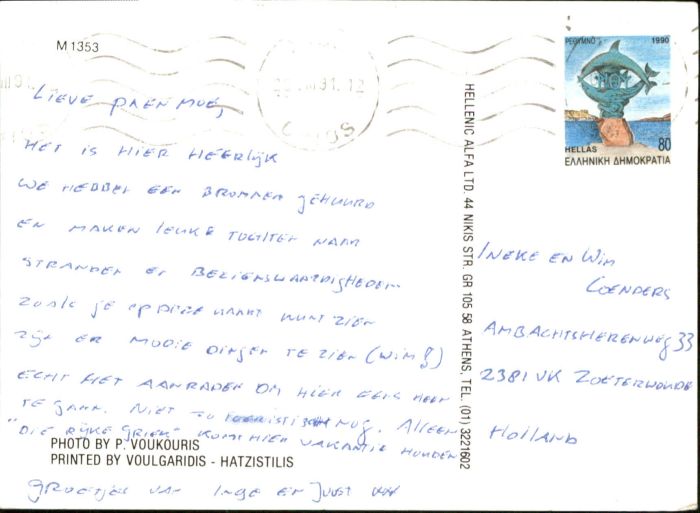 M 1353
LIEVE PA EN MOE,
HET IS HIER HEERLIJK
WE HEBBEN EEN BROMMER GEHUURD
EN MAKEN LEUKE TOCHTEN NAAR
STRANDEN EN BEZIENSWAARDIGHEDEN
ZOALS JE OP DEZE KAART KUNT ZIEN
ZIJN ER MOOIE DINGEN TE ZIEN (WIM!)
ECHT HET AANRADEN OM HIER EENS HEEN
TE GAAN. NIET ZO TOERISTISCH NOG. ALLEEN
"DIE RIJKE GRIEK" KOMT HIER VAKANTIE HOUDEN
PHOTO BY P. VOUKOURIS
PRINTED BY VOULGARIDIS - HATZISTILIS
GROETJES VAN INGE EN JUUST
HELLENIC ALFA LTD. 44 NIKIS STR. GR 105 58 ATHENS, TEL. (01) 3221602
ΡΕΘΥΜΝΟ 1990
HELLAS 80
ΕΛΛΗΝΙΚΗ ΔΗΜΟΚΡΑΤΙΑ
INEKE EN WIM
COENDERS
AMBACHTSHERENWEG 33
2381 VK ZOETERWOUDE
HOLLAND